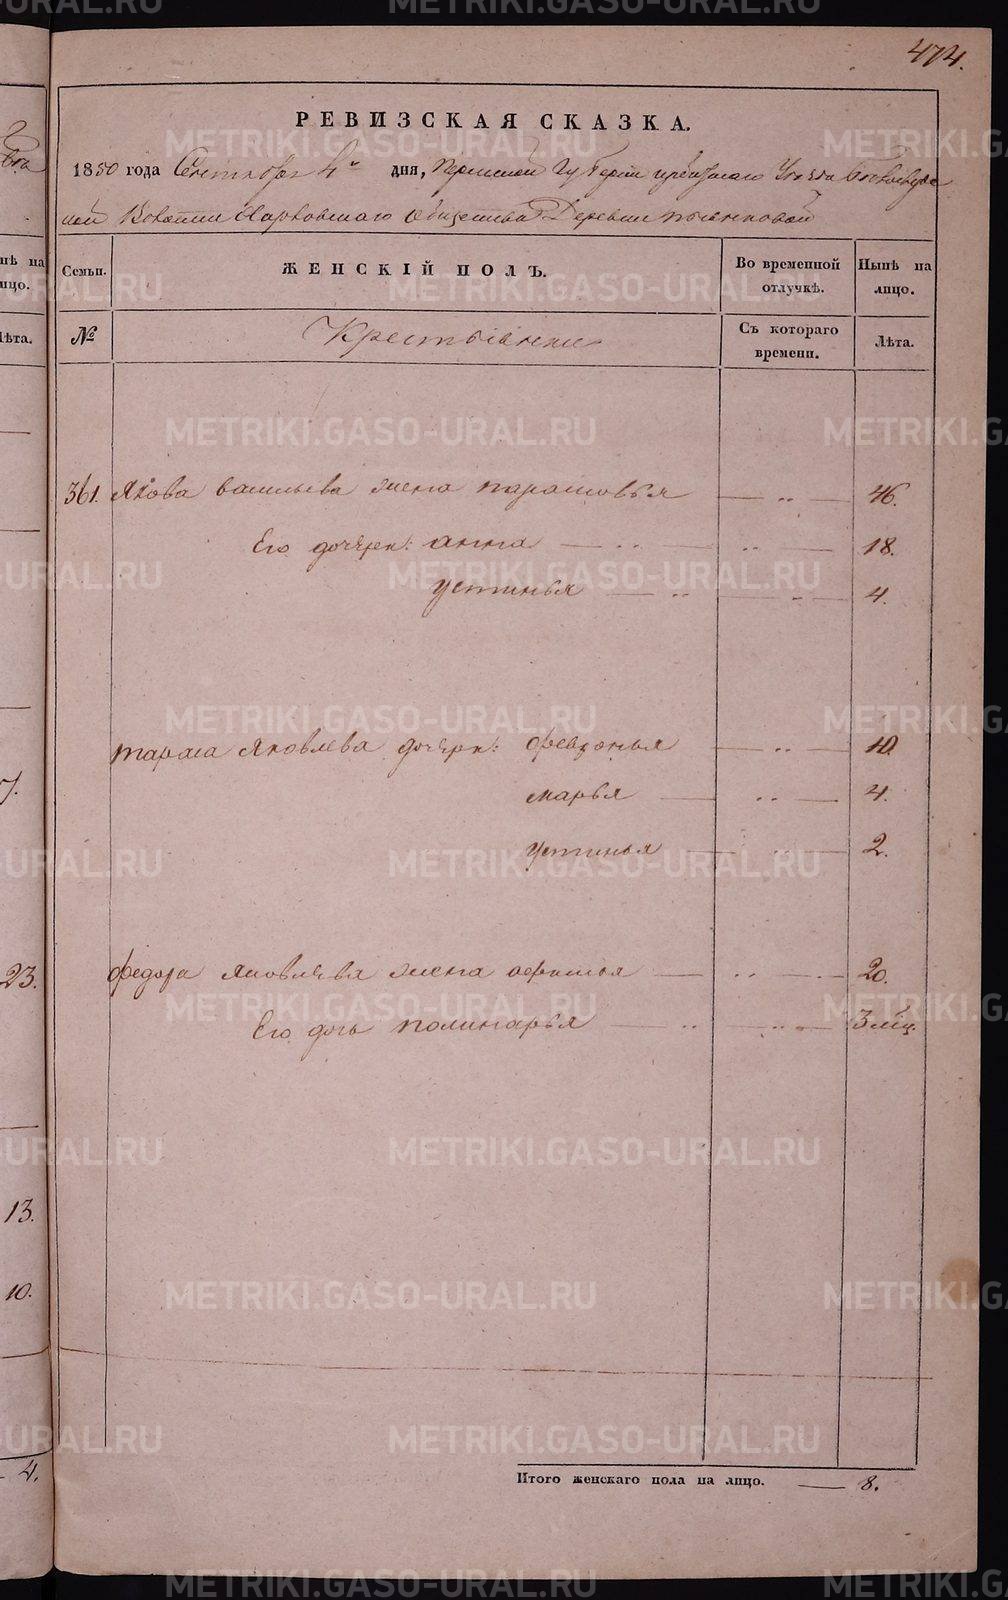 474.
РЕВИЗСКАЯ СКАЗКА.
1850 года Сентября 4го дня, Пермской Губернии Уезда
ской Волости Харловскаго общества Деревни
Семьи. ЖЕНСКІЙ ПОЛЪ. Во временной отлучкѣ. Нынѣ на лицо.
№ Крестьянки Съ котораго времени. Лѣта.
361. Якова васильева жена парасковья — „ — 46.
Его дочери: анна — „ — „ — 18.
устинья — „ — „ — 4.
тараса Яковлева дочери: февронья — „ — 10.
марья — „ — 4.
устинья — „ — 2.
федора яковлева жена — „ — 20.
Его дочь полинарья — „ — „ — 3 мѣц.
Итого женскаго пола на лицо. — 8.
нѣ на
ицо.
ѣта.
7.
23.
13.
10.
4.
METRIKI.GASO-URAL.RU